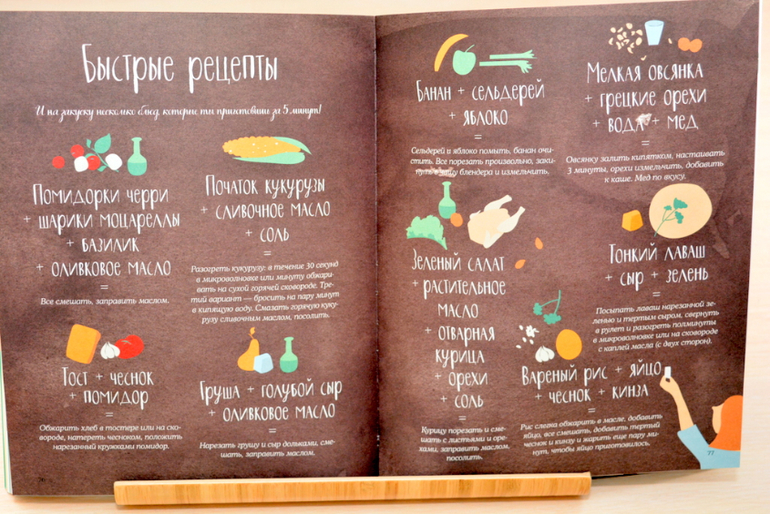 Быстрые рецепты
И на закуску несколько блюд, которые ты приготовишь за 5 минут!
Помидорки черри
+ шарики моцареллы
+ базилик
+ оливковое масло
=
Все смешать, заправить маслом.
Початок кукурузы
+ сливочное масло
+ соль
=
Разогреть кукурузу: в течение 30 секунд
в микроволновке или минуту обжари-
вать на сухой горячей сковороде. Тре-
тий вариант — бросить на пару минут
в кипящую воду. Смазать горячую куку-
рузу сливочным маслом, посолить.
Тост + чеснок
+ помидор
=
Обжарить хлеб в тостере или на ско-
вороде, натереть чесноком, положить
нарезанный кружками помидор.
Груша + голубой сыр
+ оливковое масло
=
Нарезать грушу и сыр дольками, сме-
шать, заправить маслом.
Банан + сельдерей
+ яблоко
=
Сельдерей и яблоко помыть, банан очи-
стить. Все порезать произвольно, заки-
блендера и измельчить.
Мелкая овсянка
+ грецкие орехи
+ вода + мед
=
Овсянку залить кипятком, настаивать
3 минуты, орехи измельчить, добавить
к каше. Мед по вкусу.
Зеленый салат
+ растительное
масло
+ отварная
курица
+ орехи
+ соль
=
Курицу порезать и сме-
шать с листьями и оре-
хами, заправить маслом,
посолить.
Тонкий лаваш
+ сыр + зелень
=
Посыпать лаваш нарезанной зе-
ленью и тертым сыром, свернуть
в рулет и разогреть полминуты
в микроволновке или на сковороде
с каплей масла (с двух сторон).
Вареный рис + яйцо
+ чеснок + кинза
=
Рис слегка обжарить в масле, добавить
яйцо, все смешать, добавить тертый
чеснок и кинзу и жарить еще пару ми-
нут, чтобы яйцо приготовилось.
77